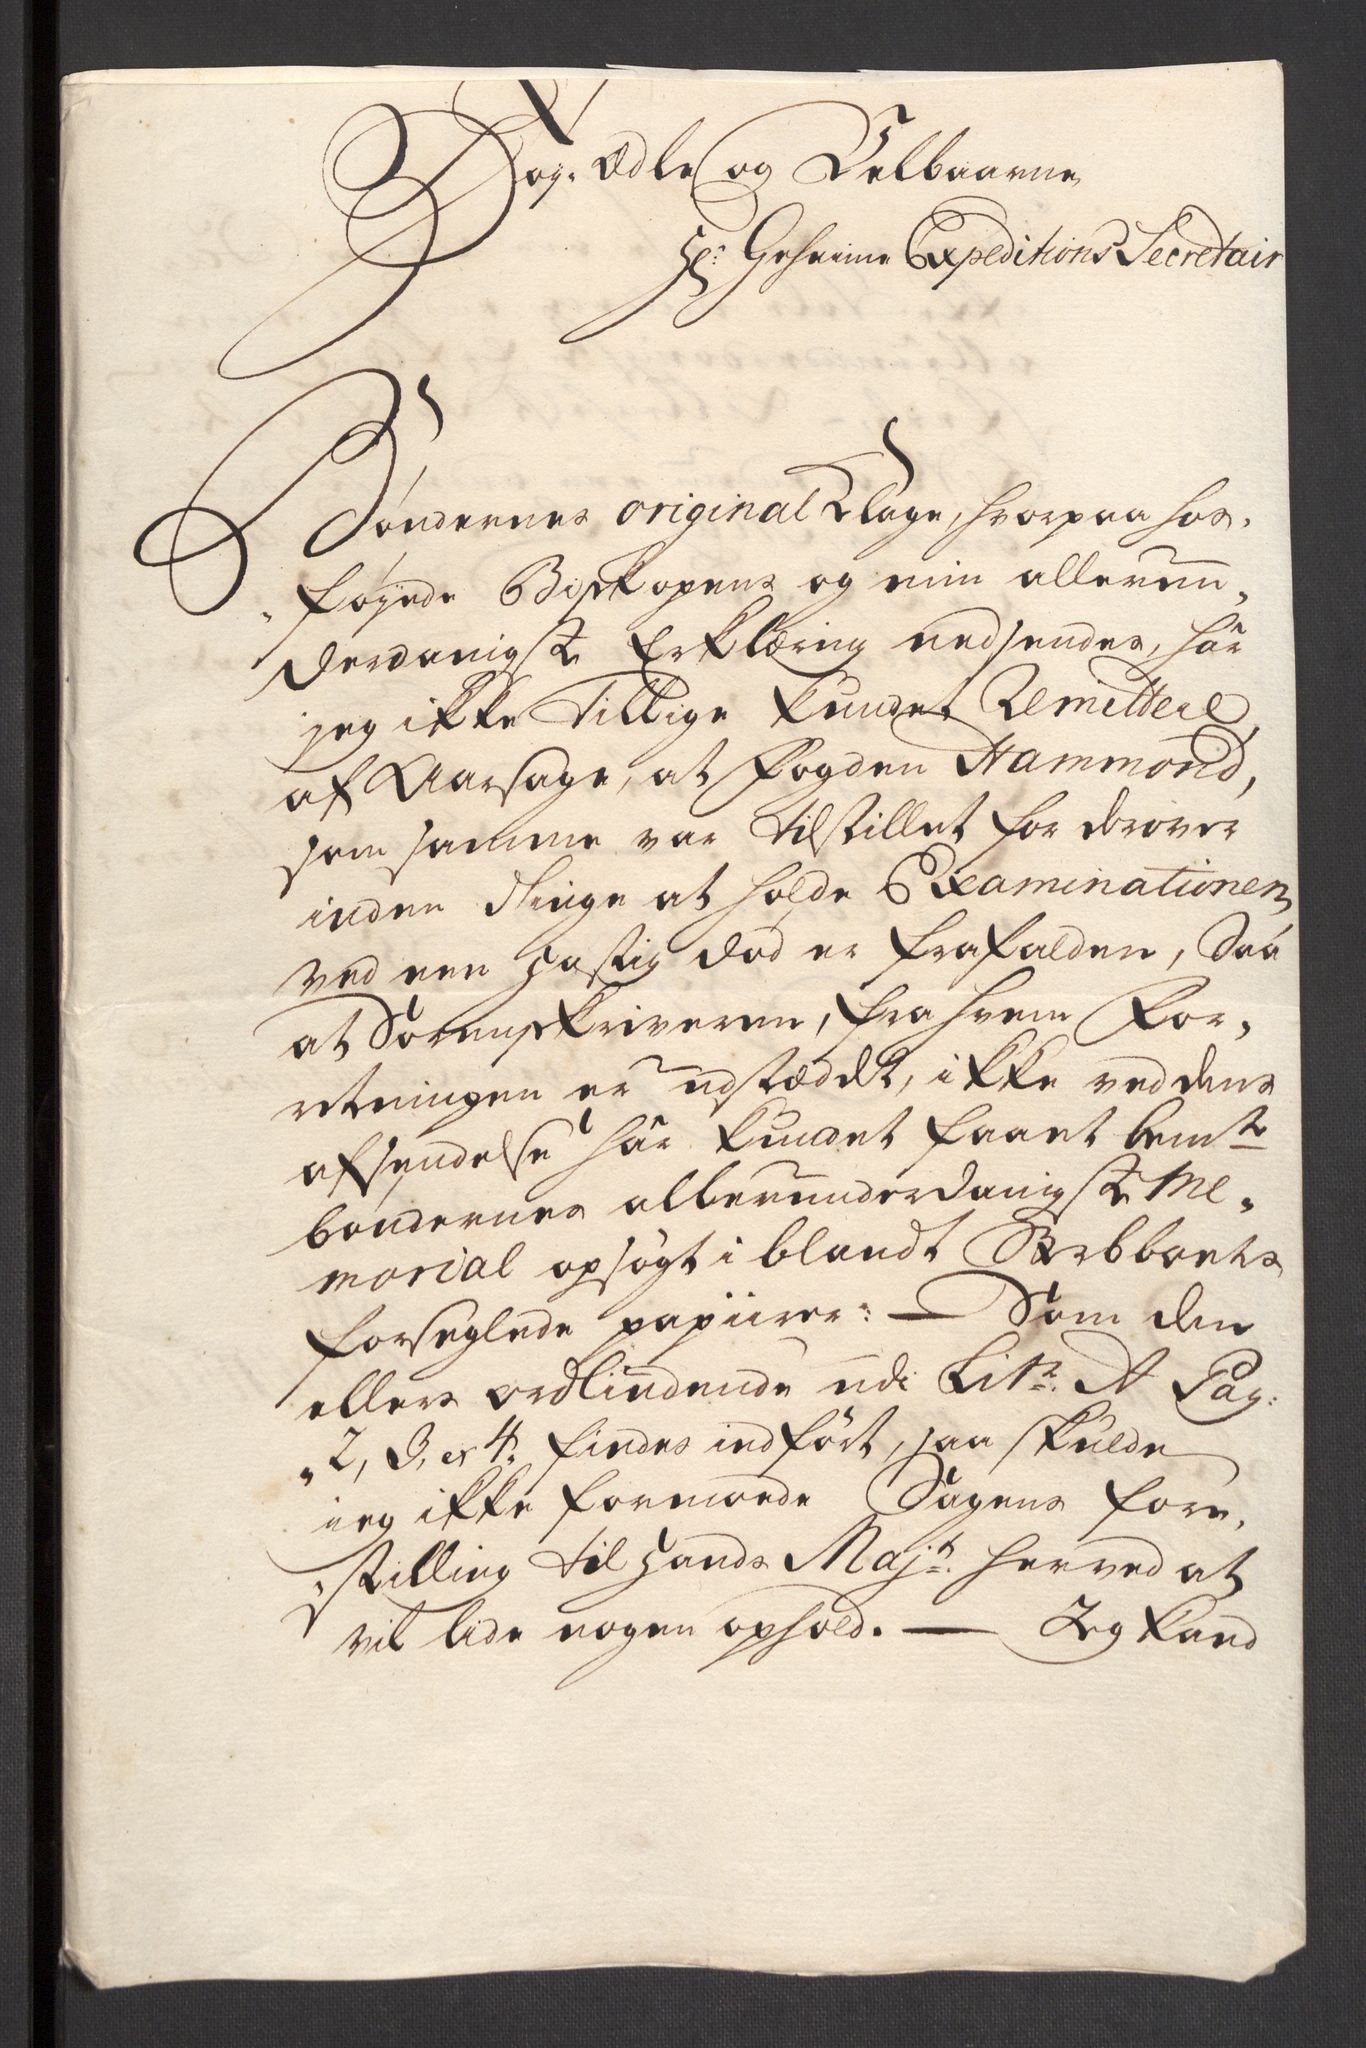 Høy-Ædle og Velbaarne
Hr: Geheime Expeditions Secretair
Bøndernes original Klage, hvorpaa hos-
føyede Biskopens og min allerun-
derdanigste Erklæring nedsendes, hâr
jeg ikke tillige kundet Remittere,
af Aarsage, at Fogden Hammond,
som samme var tilstillet for derover
inden Tinge at holde Examinationen,
ved een hastig død er frafalden, Saa
at Sorenskriveren, fra hvem For-
retningen er udstædt, ikke ved dens
afsendelse hâr kundet faaet bemte
bøndernes allerunderdanigste Me-
morial opsøgt i blandt Sterbboets
forseglede papiirer: — Som den
ellers ordlindende udi Litr. A Pag:
2, 3, et 4. findes indført, saa skulde
jeg ikke formoede Sagens fore-
stilling til Hands Majt. herved at
vil lide nogen ophold. — Jeg kand